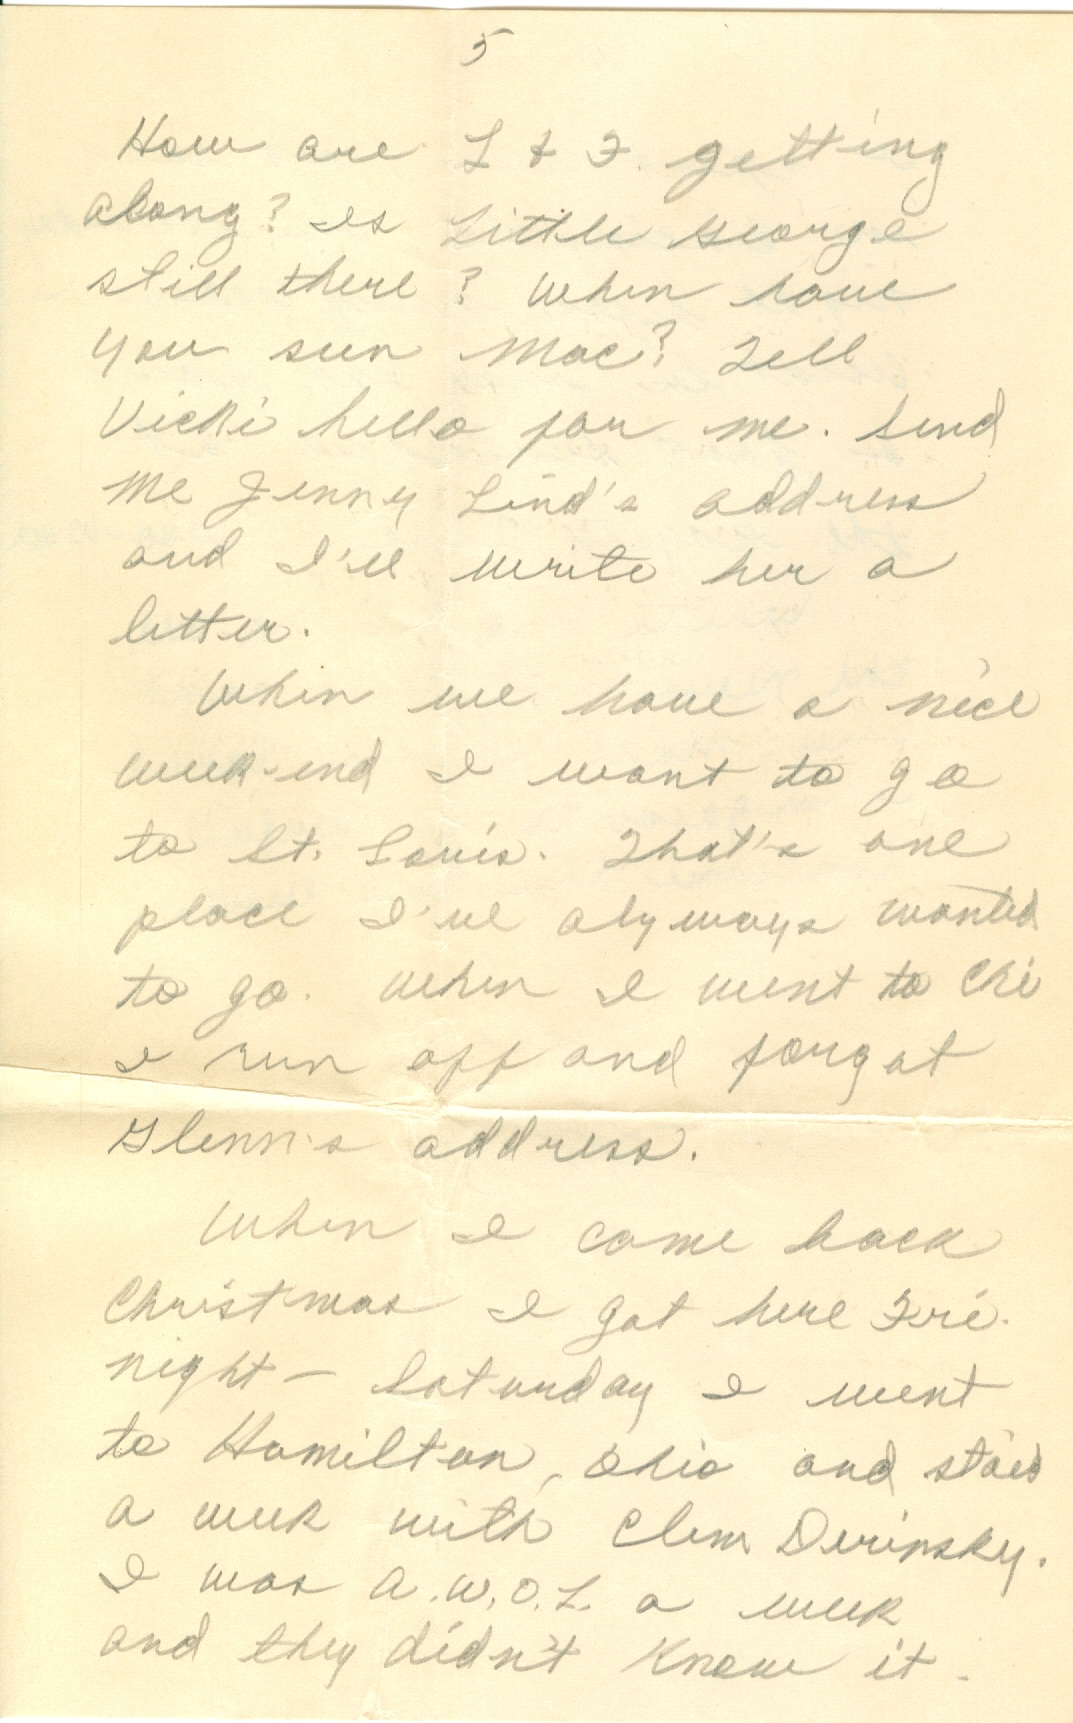 5
How are L & F. getting
along? Is Little George
still there? When have
you seen Mac? Tell
Vicki hello for me. Send
me Jenny Lind's address
and I'll write her a
letter.
When we have a nice
week-end I want to go
to St. Louis. That's one
place I've always wanted
to go. When I went to Chi
I run off and forgot
Glenn's address.
When I come back
Christmas I got here Fri.
night - Saturday I went
to Hamilton, Ohio and staid
a week with Clem
I was A.W.O.L. a week
and they didn't know it.